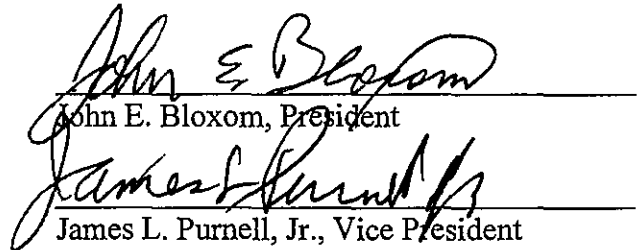 John E Bloxom
John E. Bloxom, President
James L Purnell Jr
James L. Purnell, Jr., Vice President